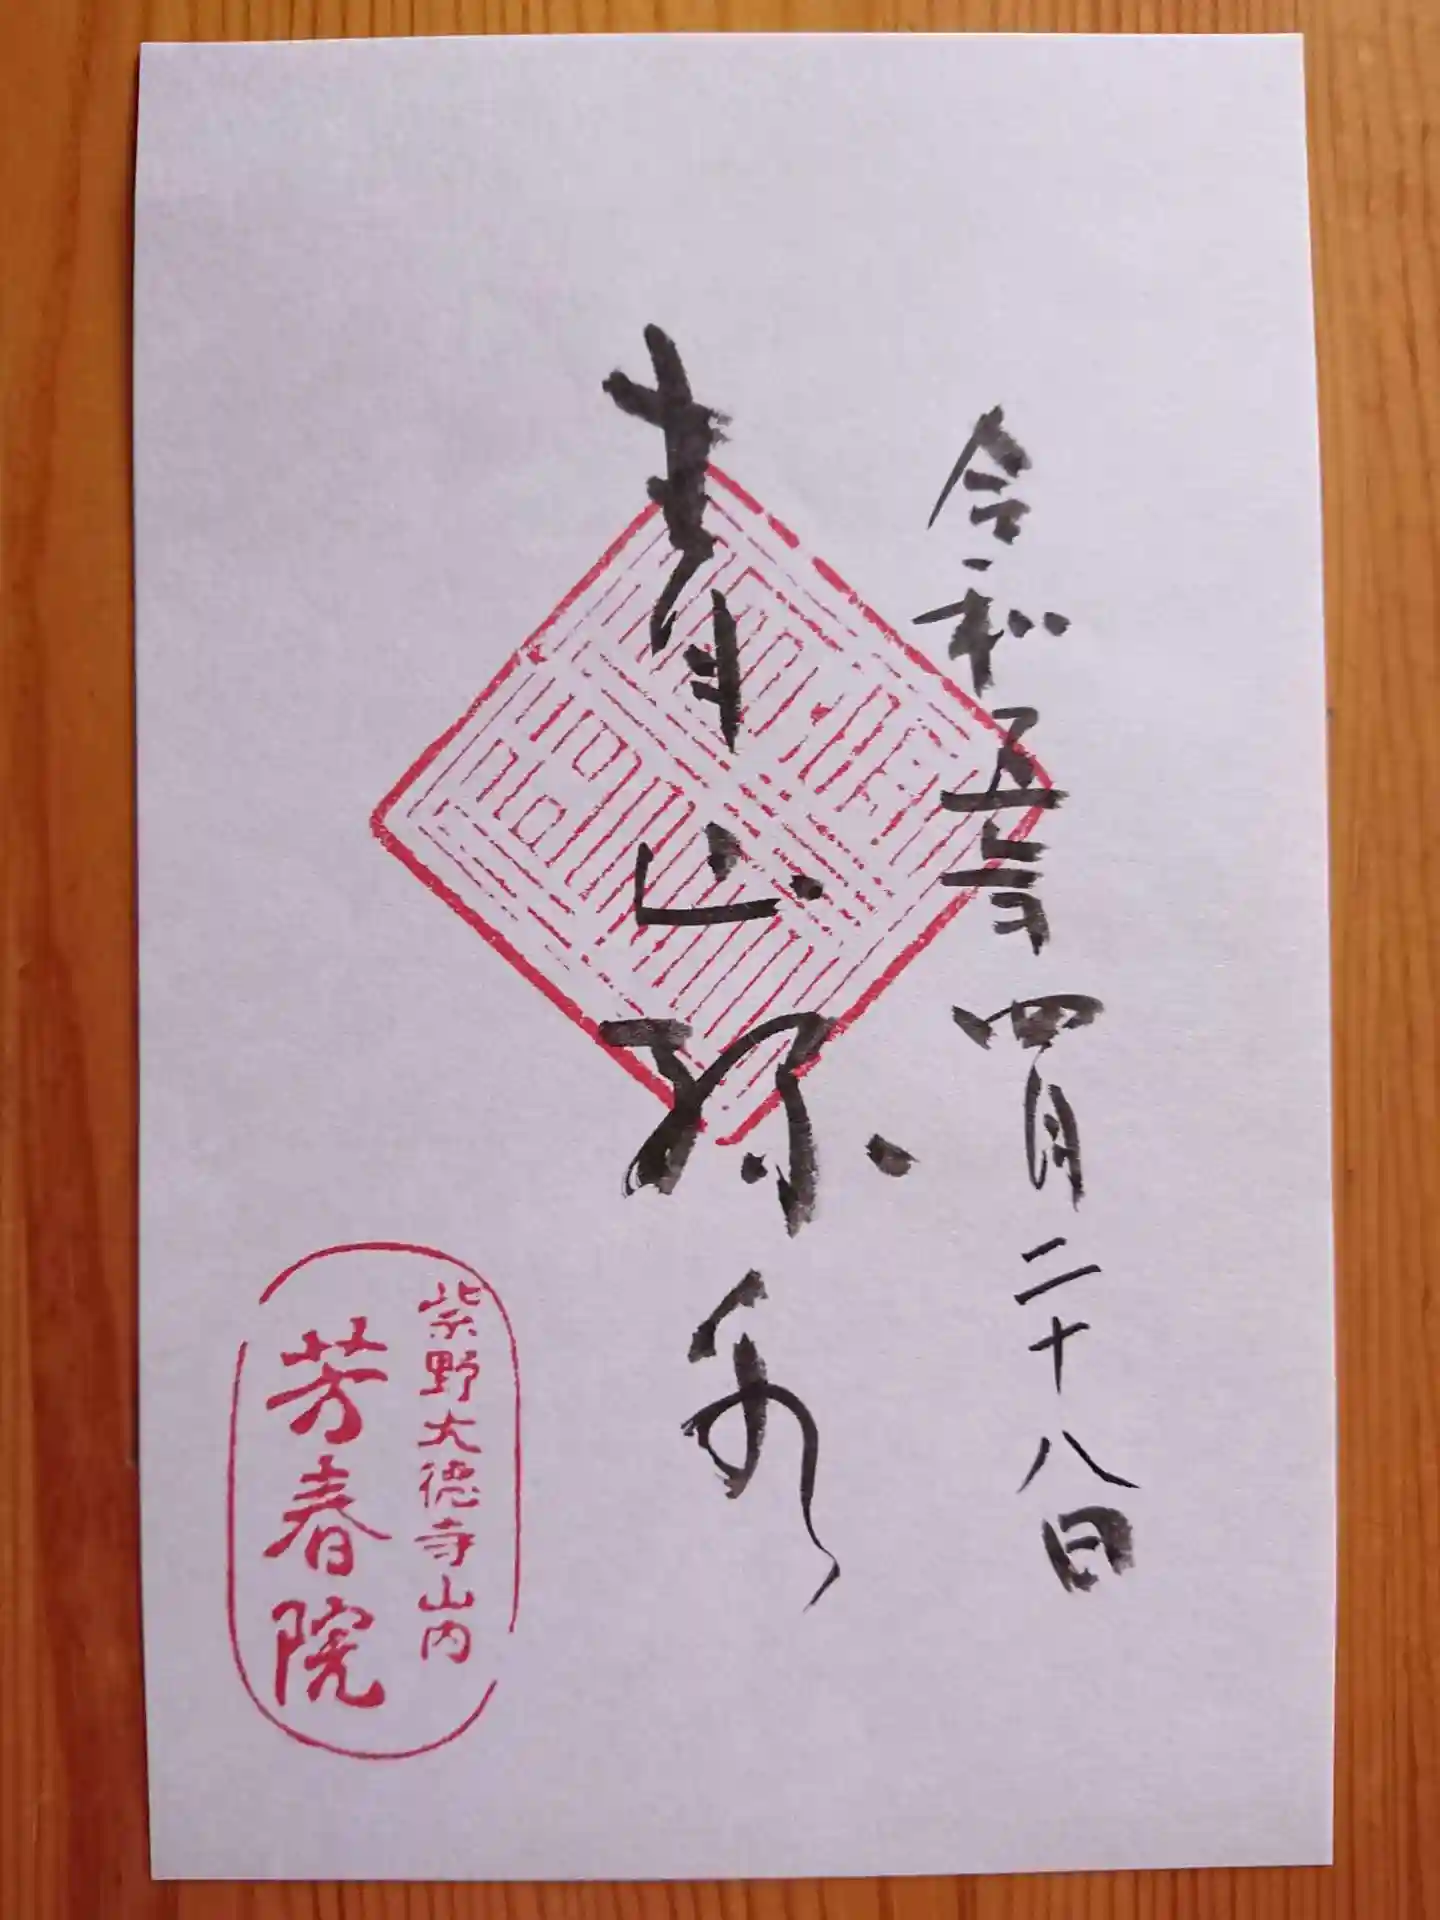 令和五年四月二十八日
青山
紫野大徳寺山内
芳春院